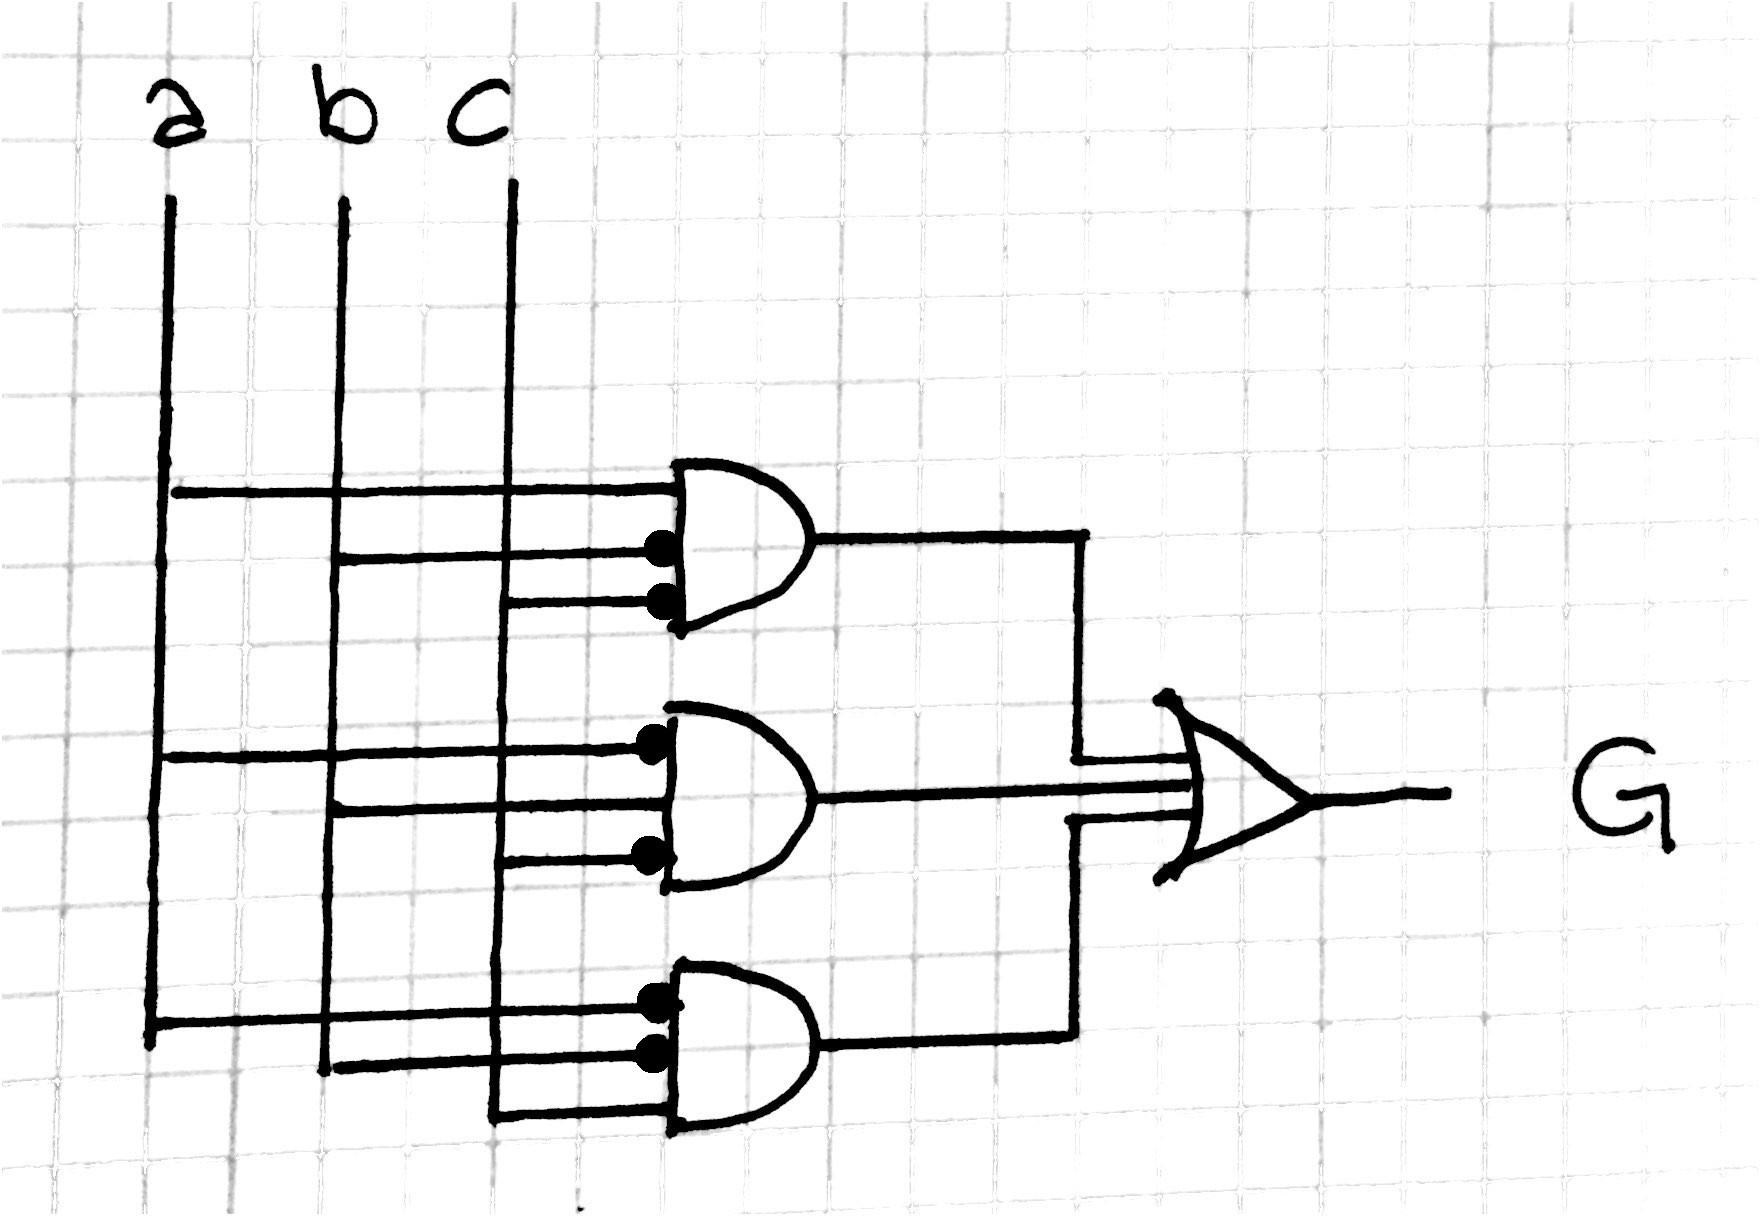 a b c
G